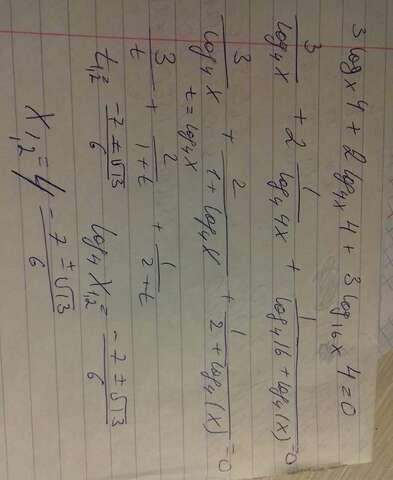 3 log_x 4 + 2 log_{4x} 4 + 3 log_{16x} 4 = 0
3/(log_4 x) + 2 1/(log_4 4x) + 1/(log_4 16 + log_4 (x)) = 0
3/(log_4 x) + 2/(1 + log_4 x) + 1/(2 + log_4 (x)) = 0
t = log_4 x
3/t + 2/(1+t) + 1/(2+t)
t_{1,2} = (-7 ± √13)/6 log_4 x_{1,2} = (-7 ± √13)/6
x_{1,2} = 4^{(-7 ± √13)/6}